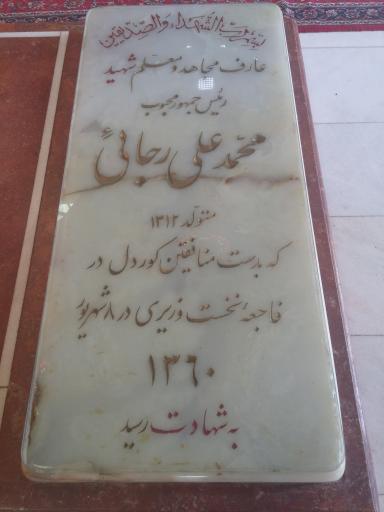 بسم رب الشهداء والصدیقین
عارف مجاهد و معلم شهید
رئیس جمهور محبوب
محمد علی رجائی
متولد ۱۳۱۲
که بدست منافقین کوردل در
فاجعهٔ نخست وزیری در ۸ شهریور
۱۳۶۰
به شهادت رسید